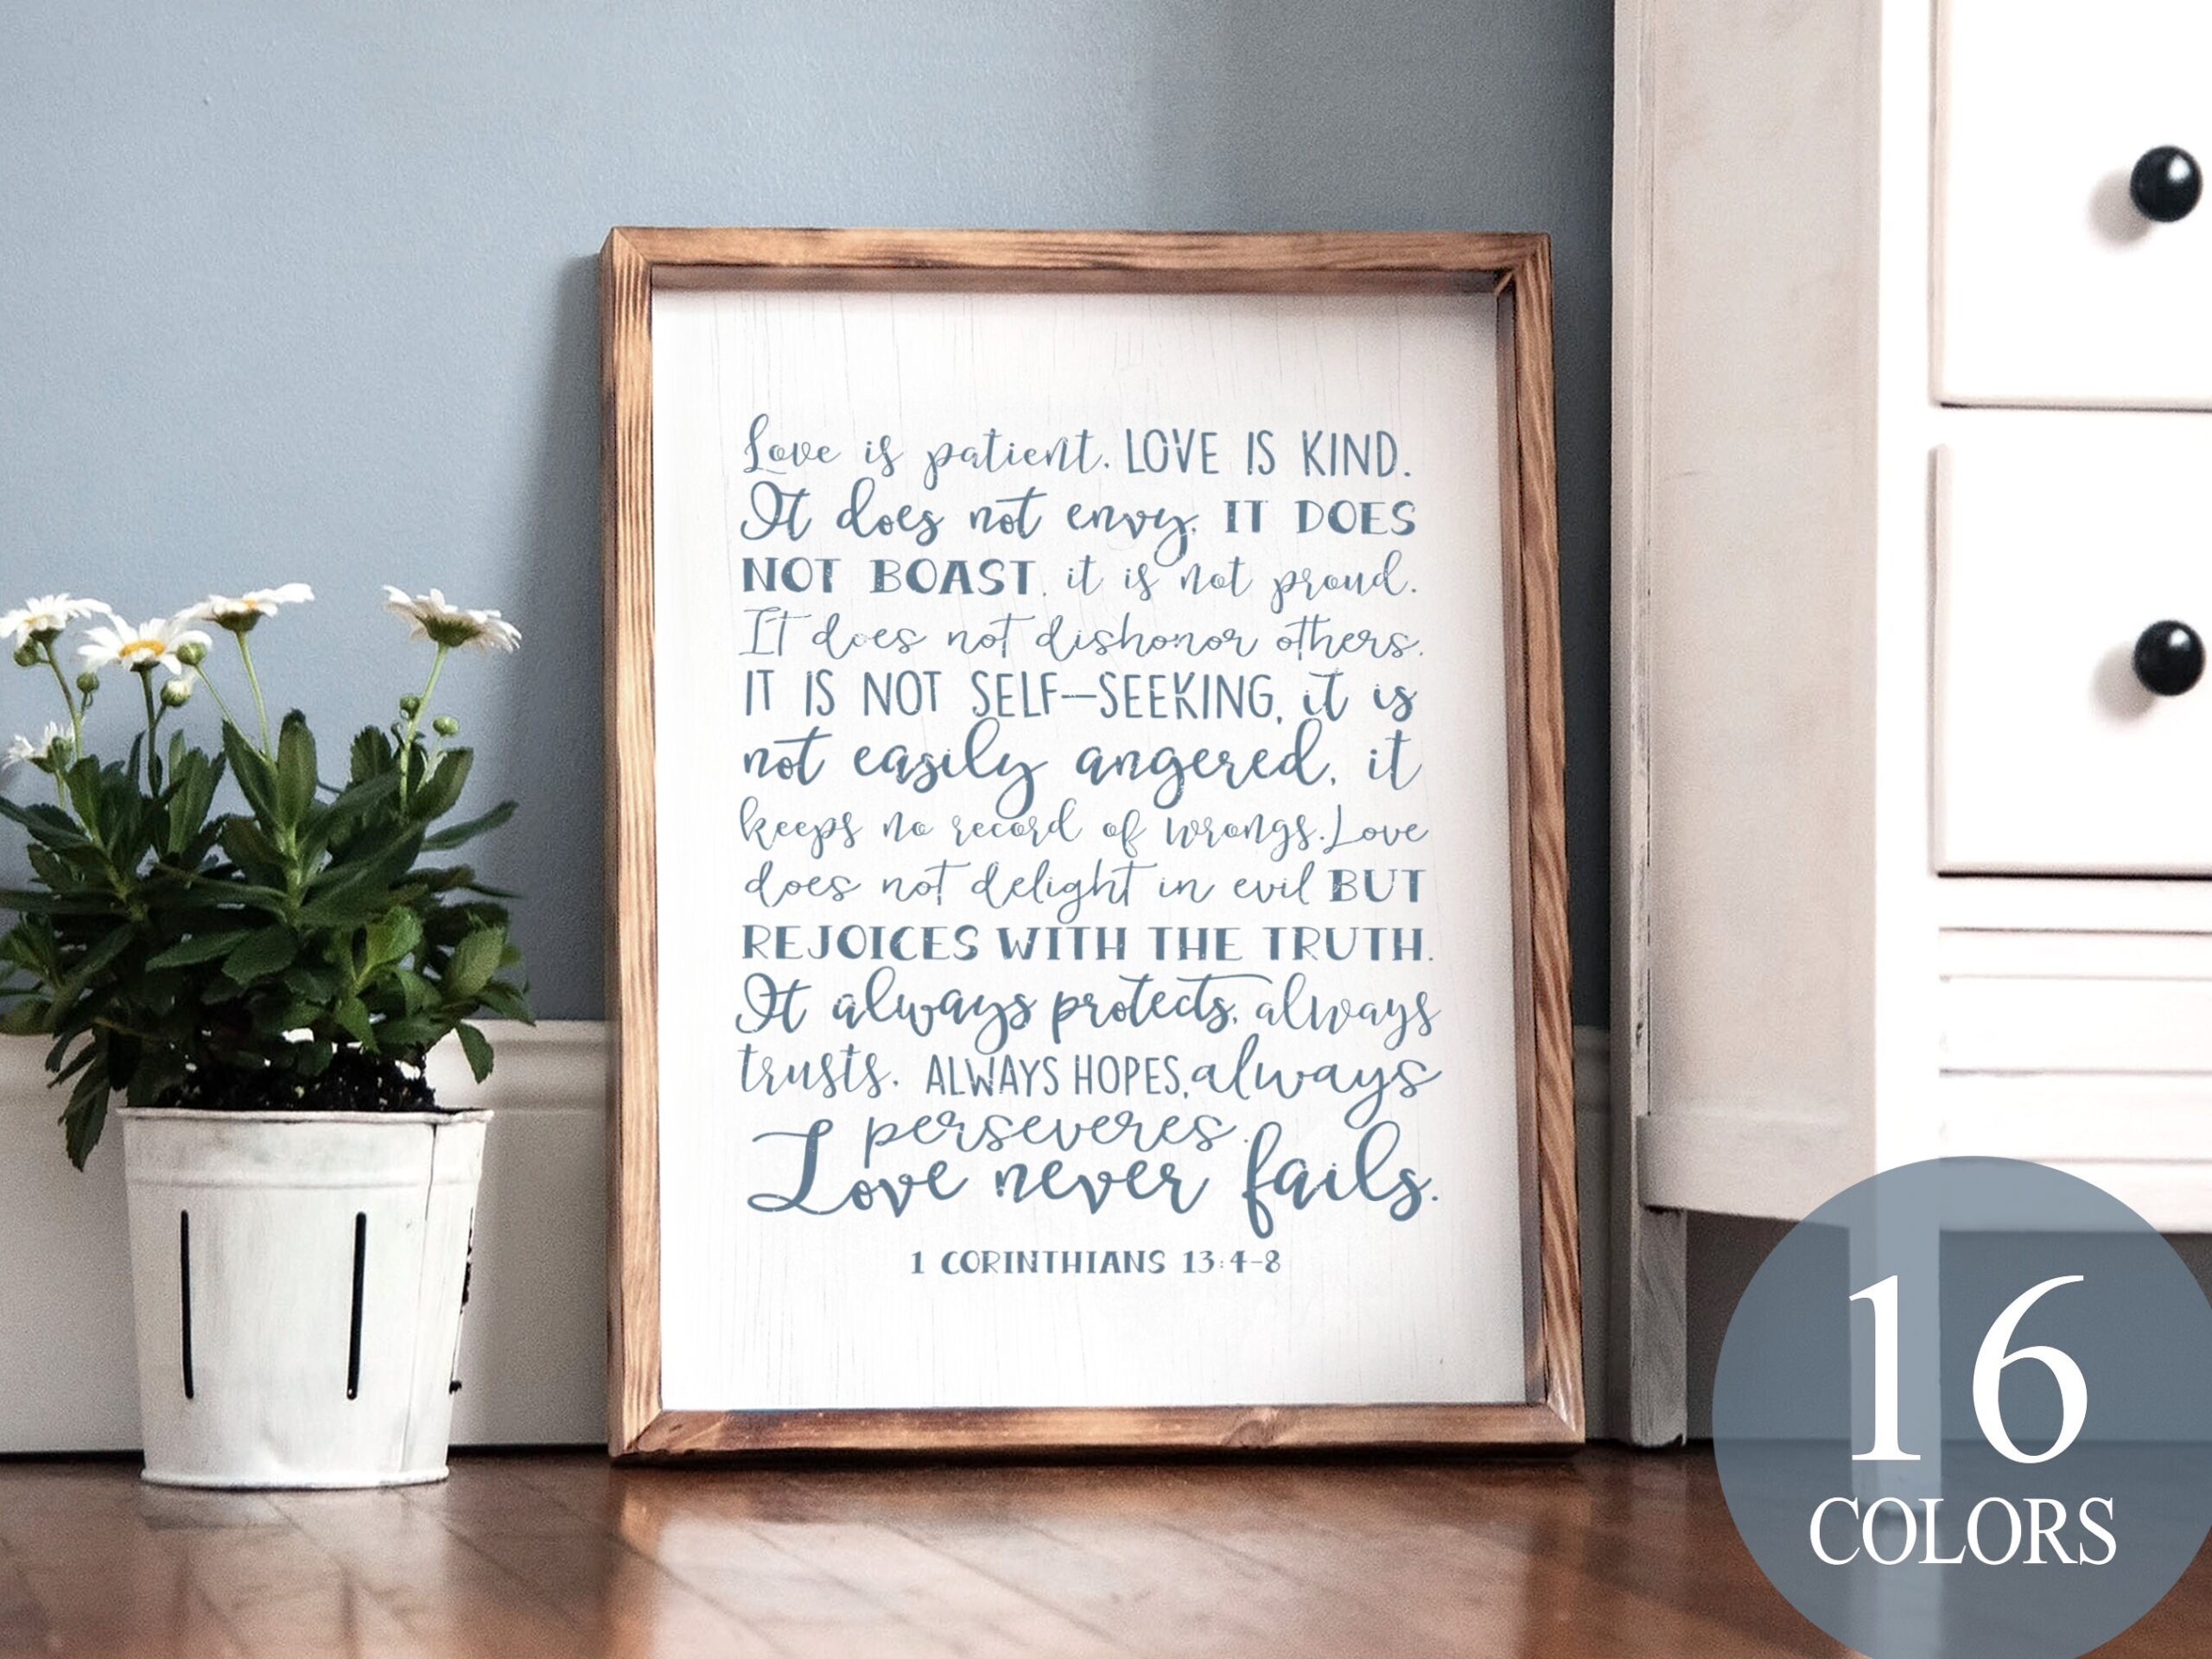 Love is patient. LOVE IS KIND.
It does not envy, IT DOES
NOT BOAST, it is not proud.
It does not dishonor others.
IT IS NOT SELF-SEEKING, it is
not easily angered, it
keeps no record of wrongs. Love
does not delight in evil BUT
REJOICES WITH THE TRUTH.
It always protects, always
trusts. ALWAYS HOPES, always
perseveres.
Love never fails.
1 CORINTHIANS 13:4-8
16
COLORS